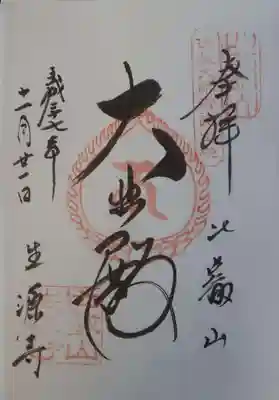 奉拝
比叡山
大悲殿
七年
十一月廿一日
生源寺